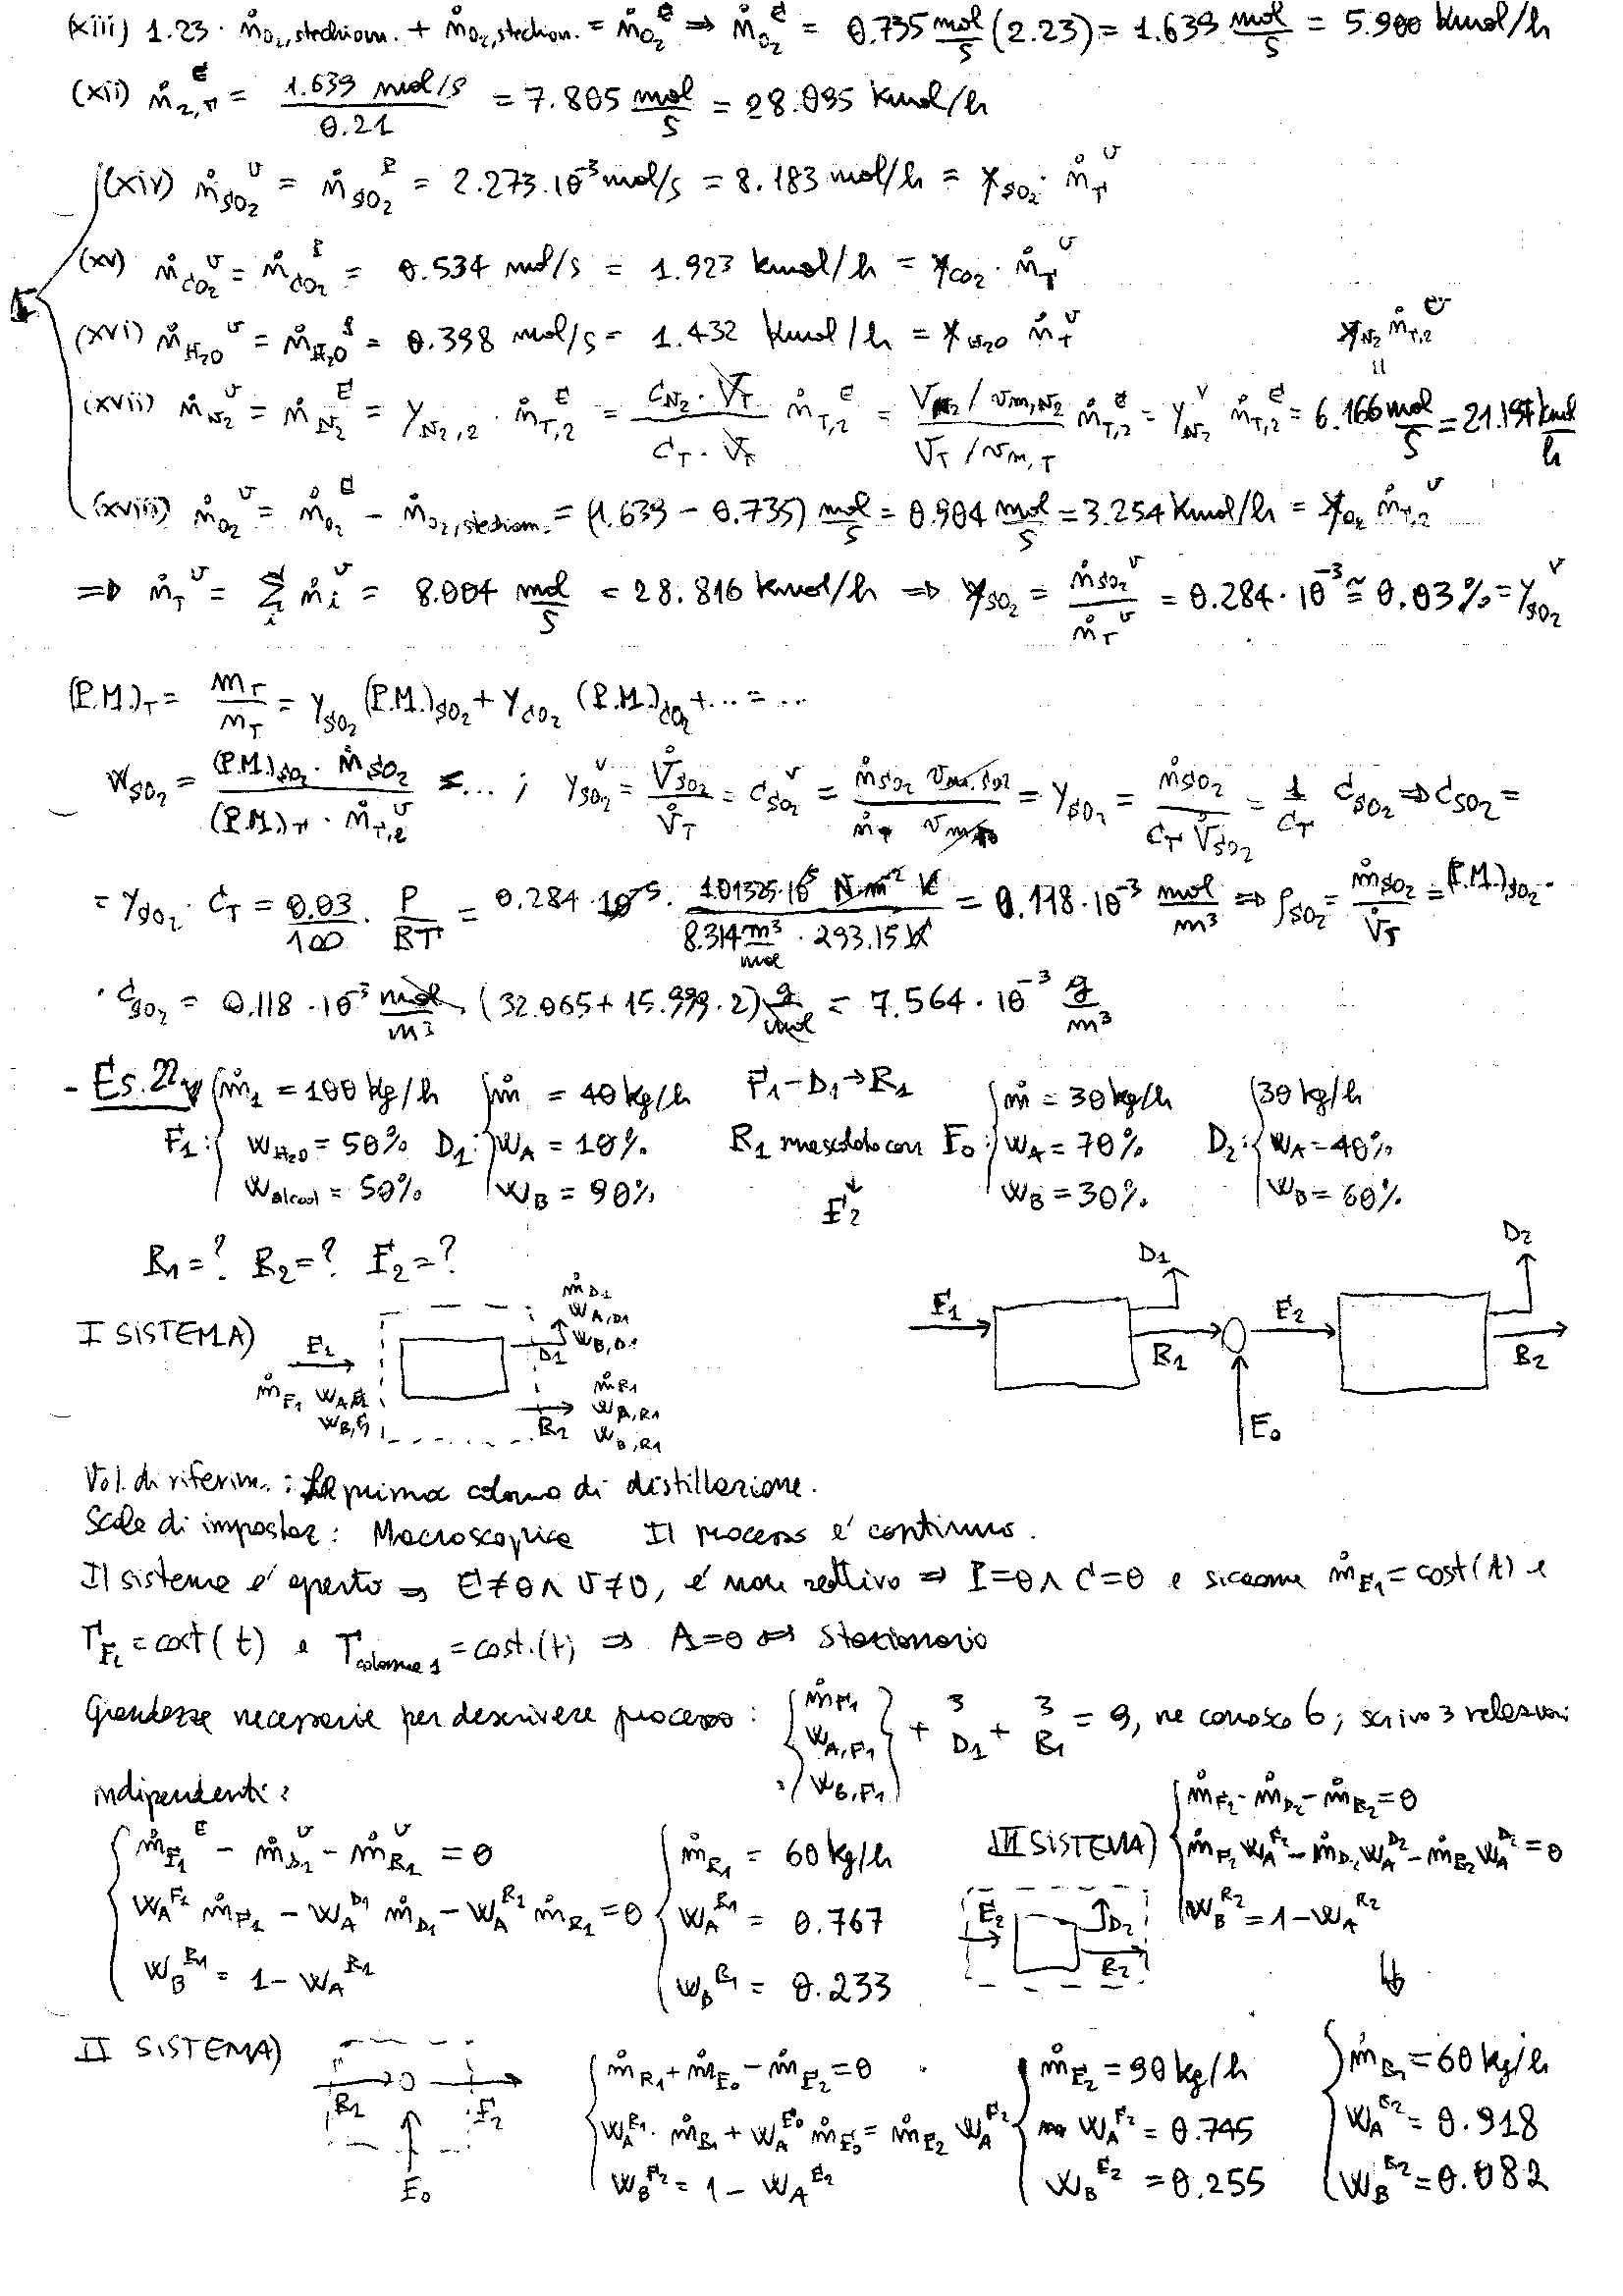 (xiii) 1.23 · ṅ_O2,stechiom. + ṅ_O2,stechiom. = ṅ_O2^E ⇒ ṅ_O2^E = 0.735 mol/s (2.23) = 1.639 mol/s = 5.900 kmol/h
(xii) ṅ_2,T^E = 1.639 mol/s / 0.21 = 7.805 mol/s = 28.095 kmol/h
(xiv) ṅ_SO2^U = ṅ_SO2^P = 2.273·10^-3 mol/s = 8.183 mol/h = x_SO2 · ṅ_T^U
(xv) ṅ_CO2^U = ṅ_CO2^P = 0.534 mol/s = 1.923 kmol/h = x_CO2 · ṅ_T^U
(xvi) ṅ_H2O^U = ṅ_H2O^P = 0.398 mol/s = 1.432 kmol/h = x_H2O ṅ_T^U
x_N2 ṅ_T,2^E
(xvii) ṅ_N2^U = ṅ_N2^E = y_N2,2 · ṅ_T,2^E = C_N2 · V_T / C_T · V_T ṅ_T,2^E = V_N2 / v_m,N2 / V_T / v_m,T ṅ_T,2^E = y_N2^V ṅ_T,2^E = 6.166 mol/s = 21.197 kmol/h
(xviii) ṅ_O2^U = ṅ_O2^E - ṅ_O2,stechiom. = (1.639 - 0.735) mol/s = 0.904 mol/s = 3.254 kmol/h = x_O2 ṅ_T,2^U
⇒ ṅ_T^U = Σ_i ṅ_i^U = 8.004 mol/s = 28.816 kmol/h ⇒ x_SO2 = ṅ_SO2^U / ṅ_T^U = 0.284 · 10^-3 ≅ 0.03% = y_SO2^V
(P.M.)_T = m_T / n_T = y_SO2 (P.M.)_SO2 + y_CO2 (P.M.)_CO2 + ... = ...
w_SO2 = (P.M.)_SO2 · ṅ_SO2 / (P.M.)_T · ṅ_T,2^U = ... ; y_SO2^V = V̇_SO2 / V̇_T = C_SO2^V = ṅ_SO2 v_m,SO2 / ṅ_T v_m,T = y_SO2 = ṅ_SO2 / C_T V̇_SO2 = 1/C_T C_SO2 ⇒ C_SO2 =
= y_SO2 · C_T = 0.03/100 · P/RT = 0.284 · 10^-5 · 1.01325·10^5 N·m^-2 K / 8.314 m^3/mol · 293.15 K = 0.118·10^-3 mol/m^3 ⇒ ρ_SO2 = ṁ_SO2 / V̇_T = (P.M.)_SO2 ·
· C_SO2 = 0.118 · 10^-3 mol/m^3 · (32.065 + 15.999 · 2) g/mol = 7.564 · 10^-3 g/m^3
- Es. 22
F1: { ṁ_1 = 100 kg/h D1: { ṁ = 40 kg/h F1 - D1 → R1 { ṁ = 30 kg/h { 30 kg/h
w_H2O = 50% w_A = 10% R1 mescolato con F0: w_A = 70% D2: w_A = 40%
w_alcool = 50% w_B = 90% ↓ F2 w_B = 30% w_B = 60%
R1 = ? R2 = ? F2 = ?
I SISTEMA)
F1 ṁ_F1 w_A,F1 w_B,F1
ṁ_D1 w_A,D1 w_B,D1 D1
ṁ_R1 w_A,R1 w_B,R1 R2
F1 D1 R1 F0 F2 D2 R2
Vol. di riferim.: La prima colonna di distillazione.
Scala di impostaz: Macroscopica Il processo e' continuo.
Il sistema e' aperto ⇒ E≠0 ∧ U≠0, e' non reattivo ⇒ I=0 ∧ C=0 e siccome ṁ_F1 = cost(t) e
T_F1 = cost(t) e T_colonna 1 = cost.(t) ⇒ A=0 ⇔ Stazionario
Grandezze necessarie per descrivere processo: { ṁ_F1 w_A,F1 w_B,F1 } + 3 D1 + 3 R1 = 9, ne conosco 6; scrivo 3 relazioni
indipendenti:
{ ṁ_F1^E - ṁ_D1^U - ṁ_R1^U = 0 { ṁ_R1 = 60 kg/h
w_A^F1 ṁ_F1 - w_A^D1 ṁ_D1 - w_A^R1 ṁ_R1 = 0 w_A^R1 = 0.767
w_B^R1 = 1 - w_A^R1 w_B^R1 = 0.233
III SISTEMA) { ṁ_F2 - ṁ_D2 - ṁ_R2 = 0
ṁ_F2 w_A^F2 - ṁ_D2 w_A^D2 - ṁ_R2 w_A^D2 = 0
w_B^R2 = 1 - w_A^R2
F2 D2 R2
II SISTEMA)
R1 F2 F0
{ ṁ_R1 + ṁ_F0 - ṁ_F2 = 0 { ṁ_F2 = 90 kg/h { ṁ_R2 = 60 kg/h
w_A^R1 · ṁ_R1 + w_A^F0 ṁ_F0 = ṁ_F2 w_A^F2 w_A^F2 = 0.745 w_A^R2 = 0.918
w_B^F2 = 1 - w_A^F2 w_B^F2 = 0.255 w_B^R2 = 0.082